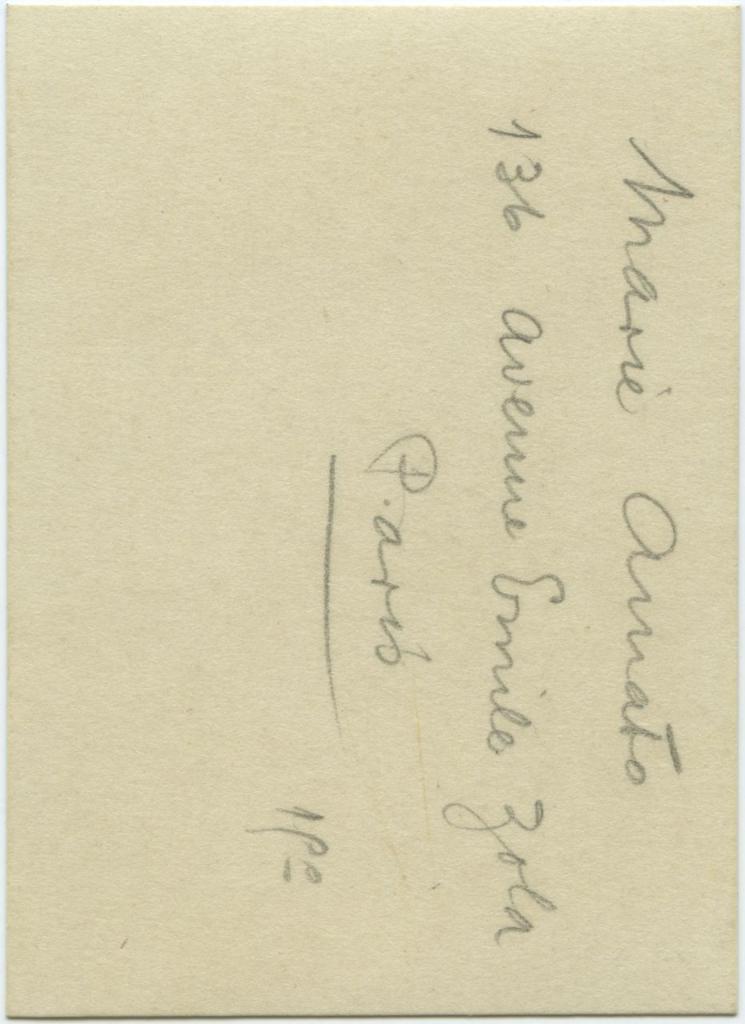 Marie Amato
136 avenue Emile Zola
Paris